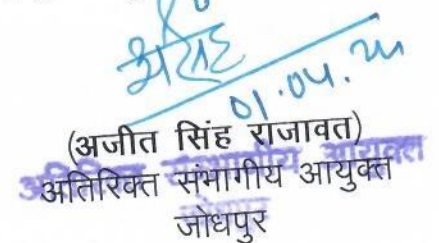 01.04.24
(अजीत सिंह राजावत)
अतिरिक्त संभागीय आयुक्त
अतिरिक्त संभागीय आयुक्त
जोधपुर
जोधपुर